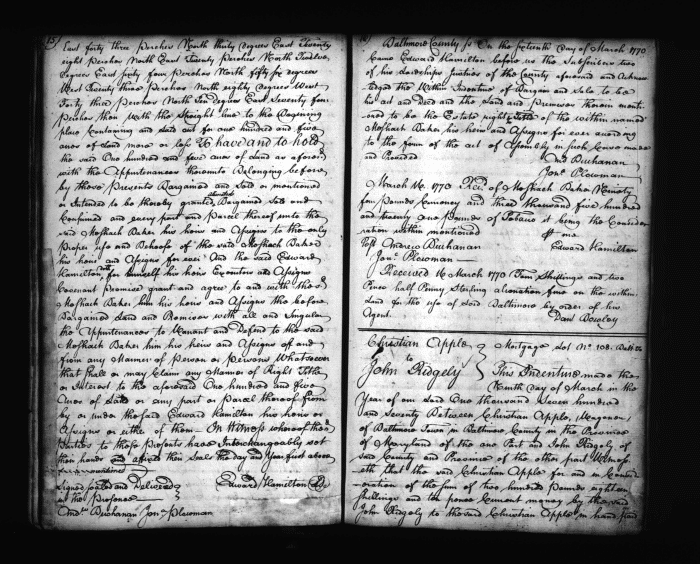 East forty three perches North thirty degrees East Twenty
eight perches North East Twenty perches North Twelve
degrees East sixty four perches North fifty six degrees
West Twenty three perches North eighty degrees West
Forty three perches North Ten degrees East Seventy four
perches then with the straight line to the Begining
place Containing and laid out for one hundred and five
acres of Land more or less To have and to hold
the said One hundred and five acres of Land as aforesd
with the Appurtenances thereunto Belonging before
by these presents Bargained and Sold or mentioned
or Intended to be thereby granted Bargained Sold and
Confirmed and every part and Parcel thereof unto the
said Meshack Baker his heirs and Assigns to the only
Proper use and Behoof of the said Meshack Baker
his heirs and Assigns for ever And the said Edward
Hamilton for himself his heirs Executors and Assigns
Covenant Promise grant and agree to and with the sd
Meshack Baker his heirs and Assigns the before
Bargained Land and Premises with all and Singular
the Appurtenances to Warrant and Defend to the said
Meshack Baker him his heirs and Assigns of and
from any Manner of Person or Persons Whatsoever
that Shall or may Claim any Manner of Right Title
or Interest to the aforesaid One hundred and five
Acres of Land or any part or Parcel thereof from
by or under the said Edward Hamilton his heirs or
Assigns or either of them. In Witness whereof the
Parties to these presents have Interchangeably set
their hands and affixed their Seals the day and Year first above
Signed Sealed and Delivered } Edward Hamilton
in the presence
Andw Buchanan Jona Plowman
Baltimore County Sc On the sixteenth Day of March 1770
Came Edward Hamilton before us the Subscribers two
of his Lordships Justices of the County aforesaid and Acknow
ledged the Within Indenture of Bargain and Sale to be
his act and Deed and the Land and premises therein menti
oned to be the Estate right & Title of the within named
Meshack Baker his heirs and Assigns for ever according
to the form of the act of Assembly in such Cases made
and Provided Andw Buchanan
Jona Plowman
March 16. 1770 Recd of Meshack Baker Ninety
four pounds Currency and three thousand five hundred
and twenty one pounds of Tobacco it being the Consider
ation within mentioned
Test Andrew Buchanan Edward Hamilton
Jona Plowman
Received 16 March 1770 Four Shillings and two
Pence half Penny Sterling alienation fine on the within
Land for the use of Lord Baltimore by order of his
Agent. Danl Bowley
Christian Apple } Mortgage Lot No 108. Balt
to
John Ridgely } This Indenture made the
Ninth Day of March in the
Year of our Lord One thousand Seven hundred
and Seventy Between Christian Apple, Waggoner
of Baltimore Town in Baltimore County in the Province
of Maryland of the one Part and John Ridgely of
said County and Province of the other part Witness
eth that the said Christian Apple for and in Consid
eration of the sum of two hundred pounds eighteen
shillings and ten pence Current money by the said
John Ridgely to the said Christian Apple in hand paid